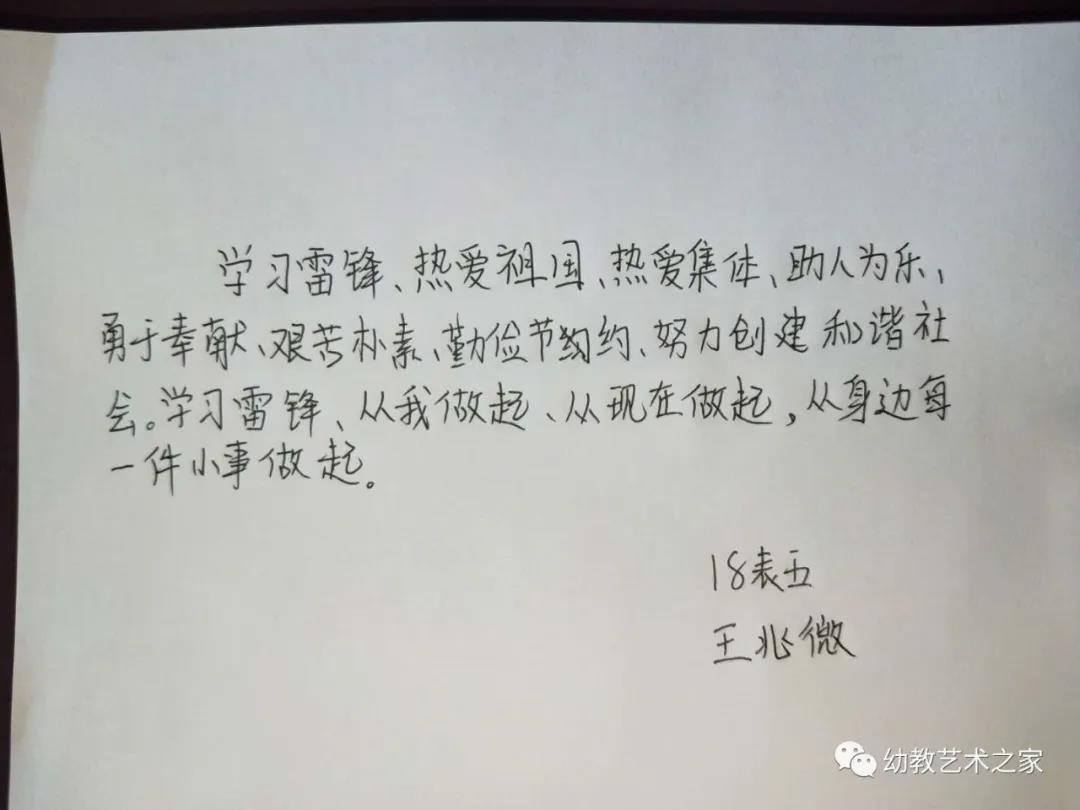 学习雷锋、热爱祖国、热爱集体、助人为乐、
勇于奉献、艰苦朴素、勤俭节约约、努力创建和谐社
会。学习雷锋、从我做起、从现在做起，从身边每
一件小事做起。
18表五
王兆微
幼教艺术之家